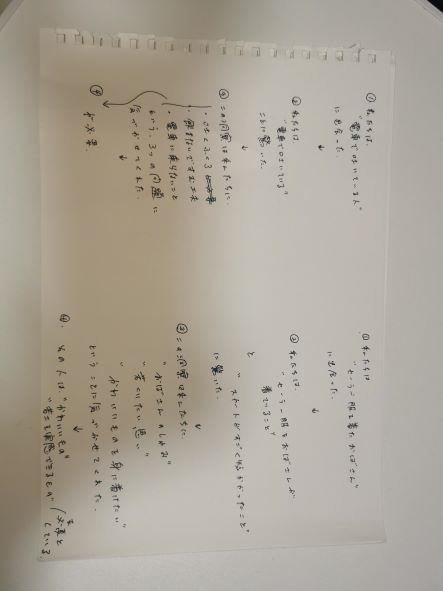 ① 私たちは、
"電車で吐いている人"
に出会った。
↓
② 私たちは、
"電車で吐いている"
ことに驚いた。
↓
③ この洞察は私たちに、
・はくふくろ
・飲まないですむ工夫
・電車に乗らないこと
という、3つの問題に
気づかせてくれた。
↓
④ が必要。
① 私たちは
"セーラー服を着たおばさん"
に出会った。
↓
② 私たちは、
"セーラー服をおばさんが
着ていること"
と
"スカートがすごく短かかったこと"
に驚いた。
↓
③ この洞察は私たちに
"おばさんの
"若くいたい思い"
"かわいいものを身に着けたい"
ということに気づかせてくれた。
↓
④ その人は、"かわいいもの"
"若さを実感できるもの"
を必要と
している